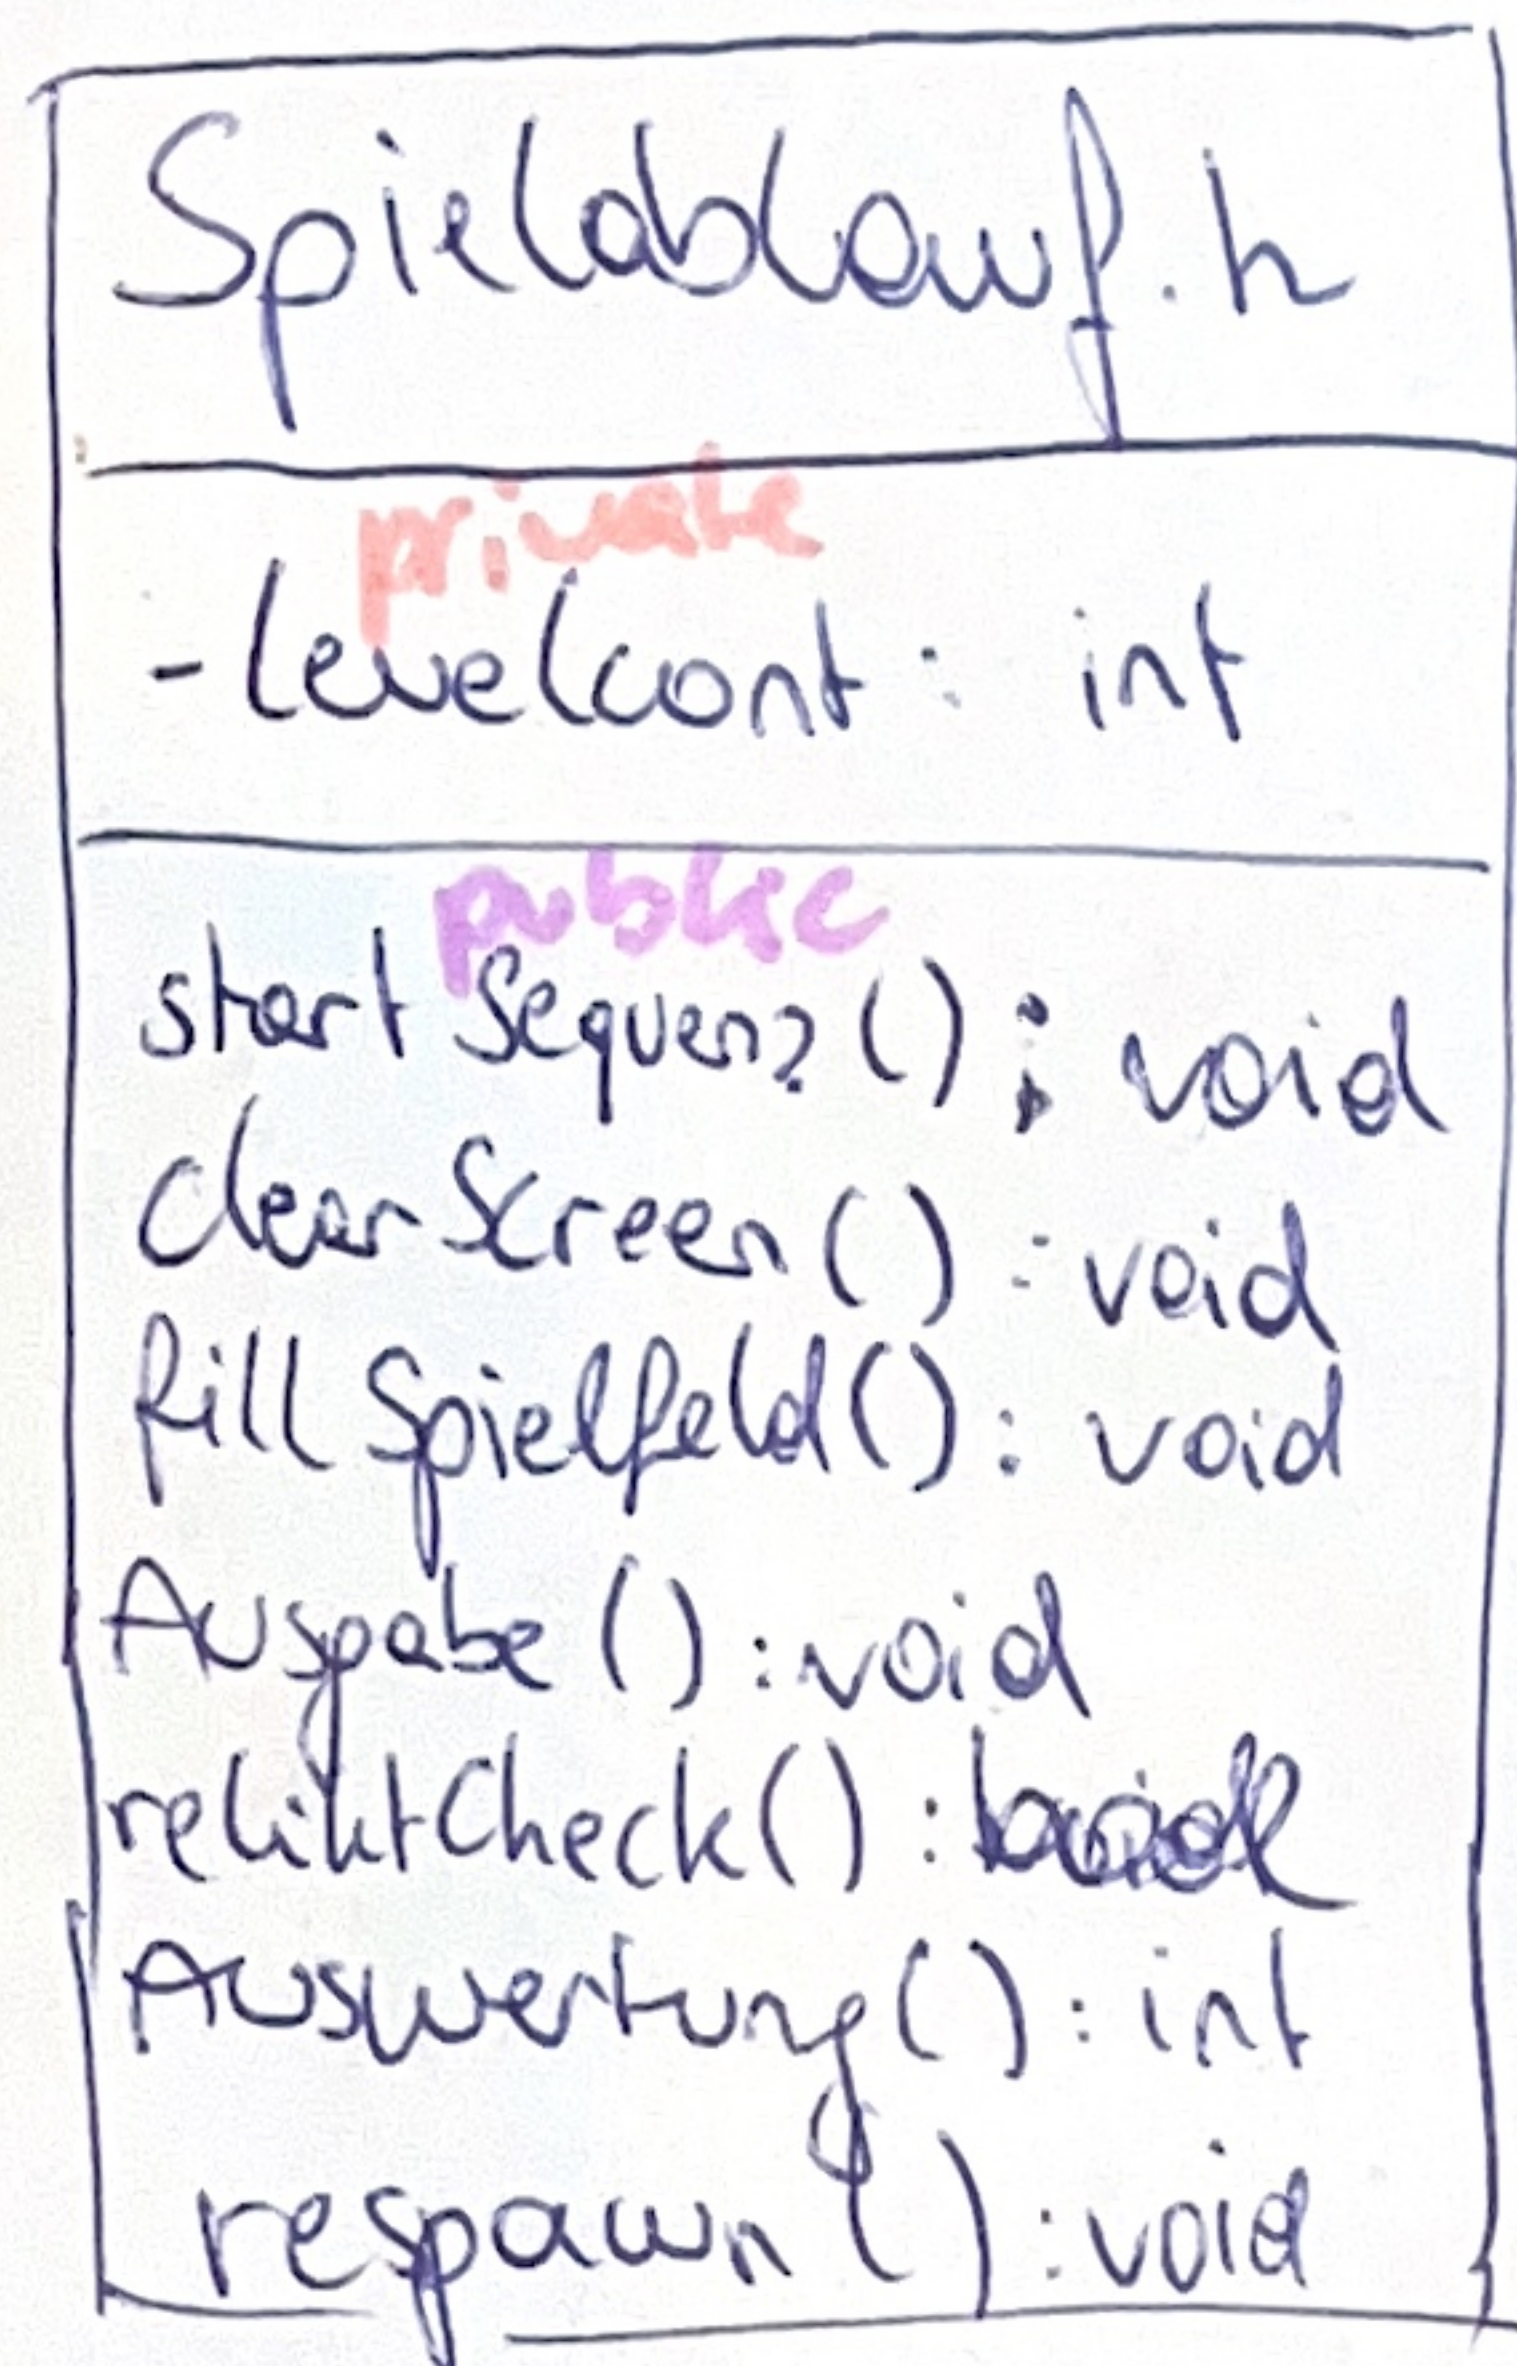 Spielablauf.h
private
-levelcont: int
public
startSequenz(): void
clearScreen(): void
fillSpielfeld(): void
Ausgabe(): void
reliktCheck(): bool
Auswertung(): int
respawn(): void